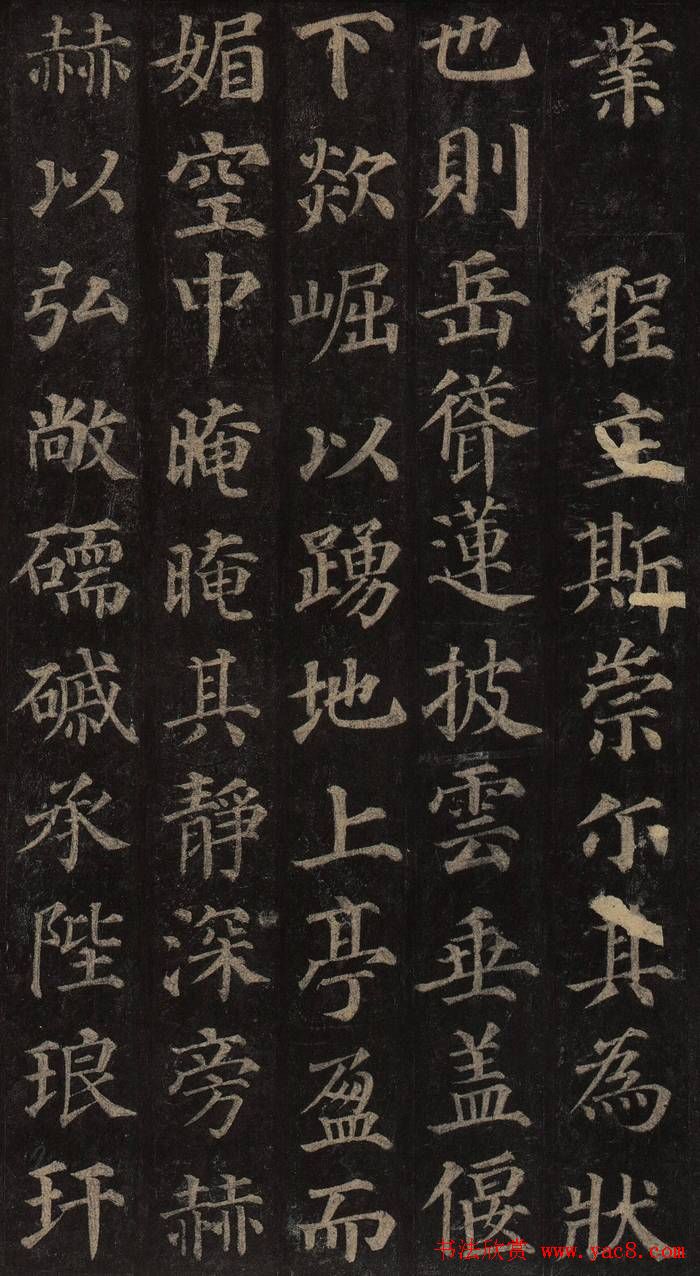 業 聖主斯崇尔其為狀
也則岳聳蓮披雲垂盖偃
下欻崛以踴地上亭盈而
媚空中晻晻其靜深旁赫
赫以弘敞礝磩承陛琅玕
书法欣赏 www.yac8.com